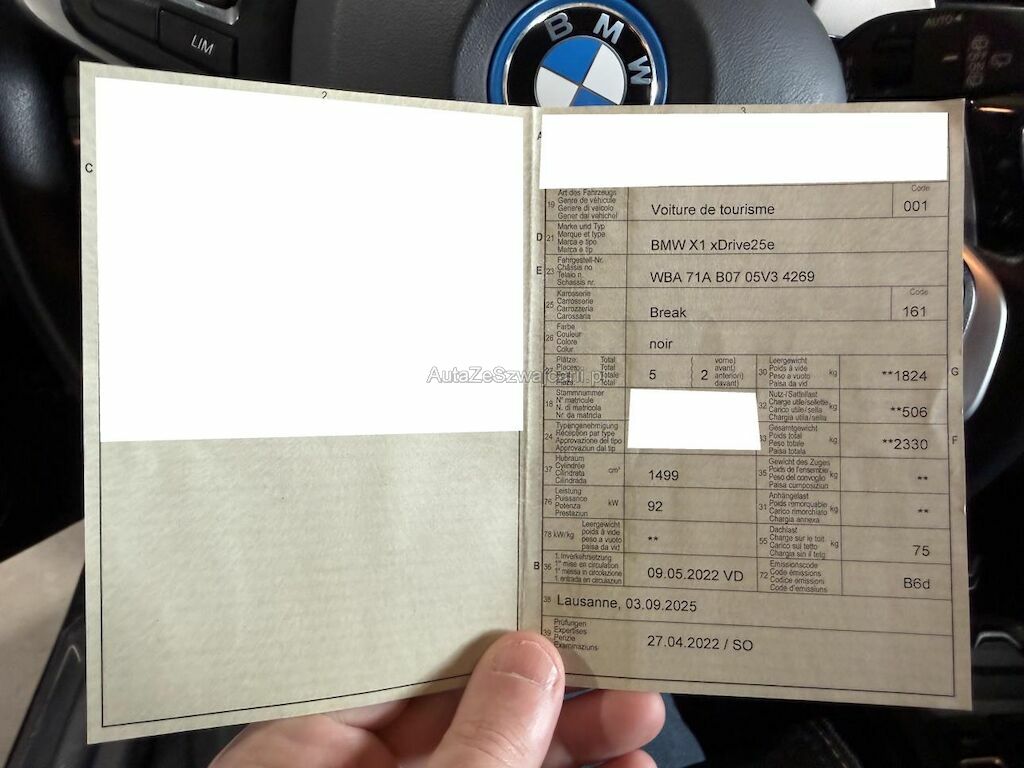 LIM
BMW
AUTO
2
3
C
A
Code
19 Art des Fahrzeugs
Genre de véhicule
Genere di veicolo
Gener dal vehichel
Voiture de tourisme
001
D 21 Marke und Typ
Marque et type
Marca e tipo
Marca e tip
BMW X1 xDrive25e
E 23 Fahrgestell-Nr.
Châssis no
Telaio n.
Schassis nr.
WBA 71A B07 05V3 4269
25 Karosserie
Carrosserie
Carrozzeria
Carossaria
Break
Code
161
26 Farbe
Couleur
Colore
Colur
noir
Plätze: Total
Places: Total
Totale
Total
5
( 2 vorne)
avant)
anteriori)
davant)
30 Leergewicht
Poids à vide
Peso a vuoto
Paisa da vid
kg
**1824
G
AutaZeSzwajcarii.pl
18 Stammnummer
N° matricule
N. di matricola
Nr. da matricla
32 Nutz-/Sattellast
Charge utile/sellette
Carico utile/sella
Chargia utila/sella
kg
**506
24 Typengenehmigung
Réception par type
Approvazione del tipo
Approvaziun dal tip
33 Gesamtgewicht
Poids total
Peso totale
Paisa totala
kg
**2330
F
37 Hubraum
Cylindrée
Cilindrata
Cilindrada
cm³
1499
35 Gewicht des Zuges
Poids de l'ensemble
Peso del convoglio
Paisa cumposiziun
kg
**
76 Leistung
Puissance
Potenza
Prestaziun
kW
92
31 Anhängelast
Poids remorquable
Carico rimorchiato
Chargia annexa
kg
**
78 kW/kg Leergewicht
poids à vide
peso a vuoto
paisa da vid
**
55 Dachlast
Charge sur le toit
Carico sul tetto
Chargia sin il tetg
kg
75
B 36 1. Inverkehrsetzung
1re mise en circulation
1a messa in circolazione
1. entrada en circulaziun
09.05.2022 VD
72 Emissionscode
Code émissions
Codice emissioni
Code d'emissiuns
B6d
38 Lausanne, 03.09.2025
39 Prüfungen
Expertises
Perizie
Examinaziuns
27.04.2022 / SO